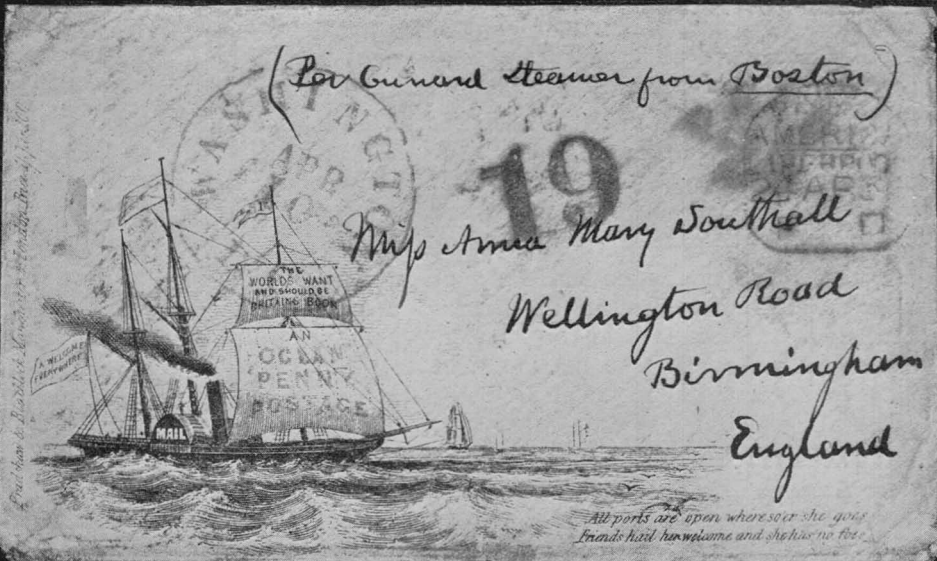 (Per Cunard Steamer from Boston)
WASHINGTO
APR
19
AMERI
LIVERPO
AP
Miss Anna Mary Southall
Wellington Road
Birmingham
England
THE
WORLDS WANT
AND SHOULD BE
BRITAINS BOON
AN
OCEAN
PENNY
POSTAGE
A WELCOME
EVERYWHERE
MAIL
All ports are open wheresoe'er she goes
Friends hail her welcome and she has no foes